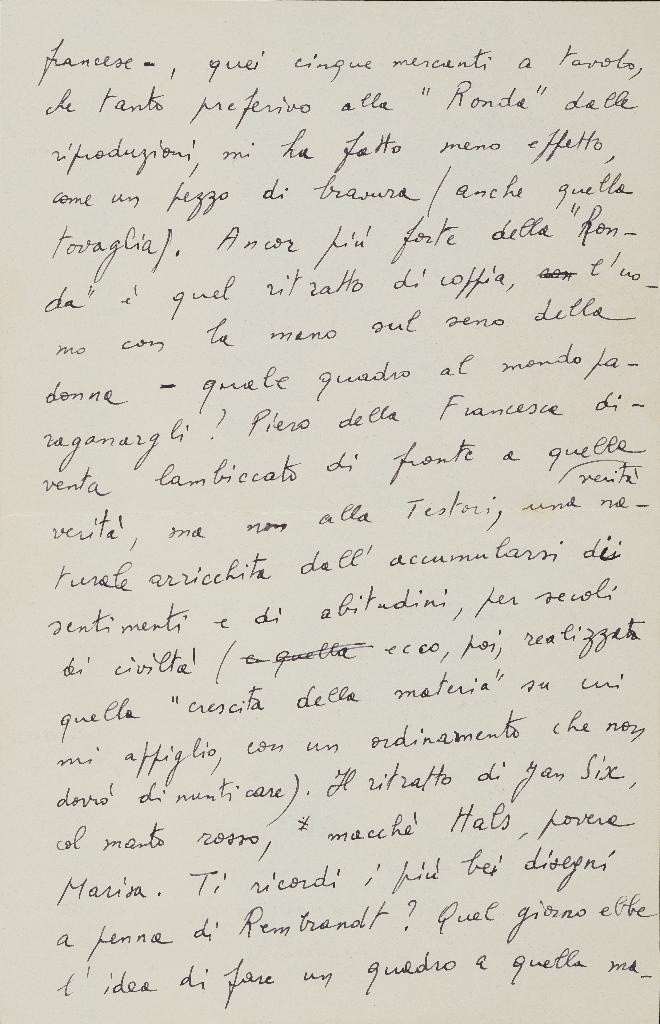 francese –, quei cinque mercanti a tavolo,
che tanto preferivo alla "Ronda" dalle
riproduzioni, mi ha fatto meno effetto,
come un pezzo di bravura (anche quella
tovaglia). Ancor più forte della "Ron-
da" è quel ritratto di coppia, con l'uo-
mo con la mano sul seno della
donna – quale quadro al mondo pa-
ragonargli? Piero della Francesca di-
venta lambiccato di fronte a quella
verità, ma non alla Testori, una verità na-
turale arricchita dall'accumularsi dei
sentimenti e di abitudini, per secoli
di civiltà (e quella ecco, poi, realizzata
quella "crescita della materia" su cui
mi appiglio, con un ordinamento che non
dovrò dimenticare). Il ritratto di Jan Six,
col manto rosso, * macché Hals, povera
Marisa. Ti ricordi i più bei disegni
a penna di Rembrandt? Quel giorno ebbe
l'idea di fare un quadro a quella ma-